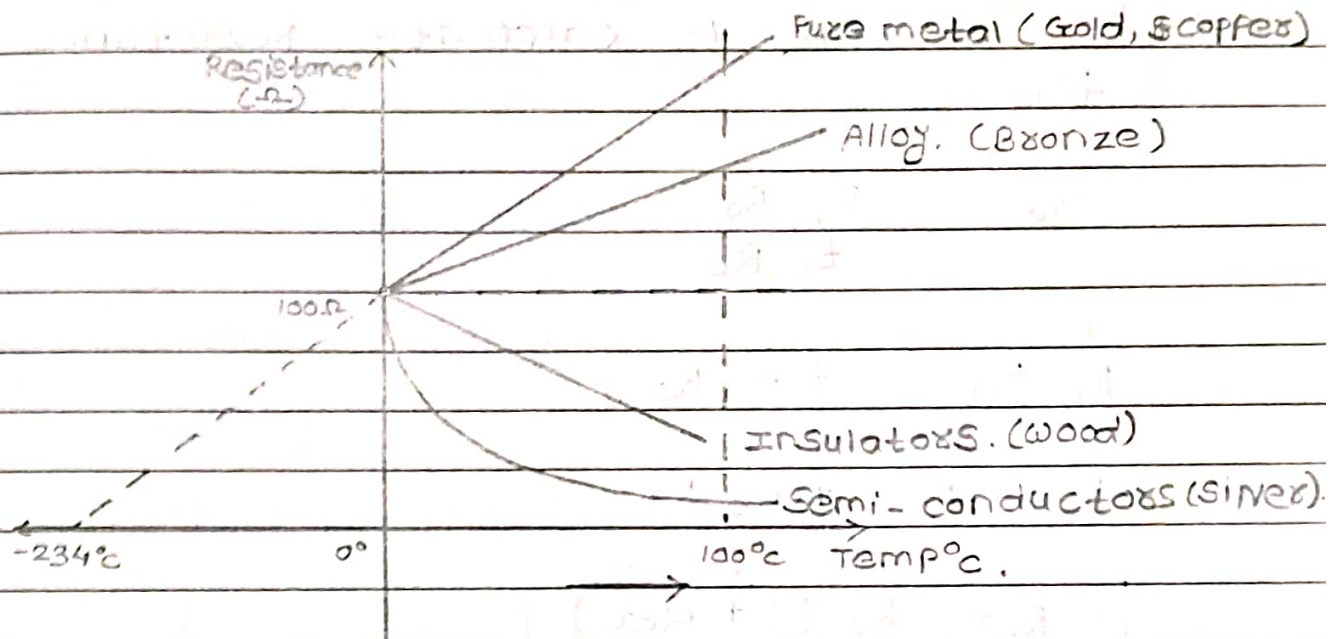 Pure metal (Gold, & copper)
Resistance
(Ω)
Alloy. (Bronze)
100Ω
Insulators. (wood)
Semi-conductors (Silver).
-234°c
0°
100°c
Temp°c.